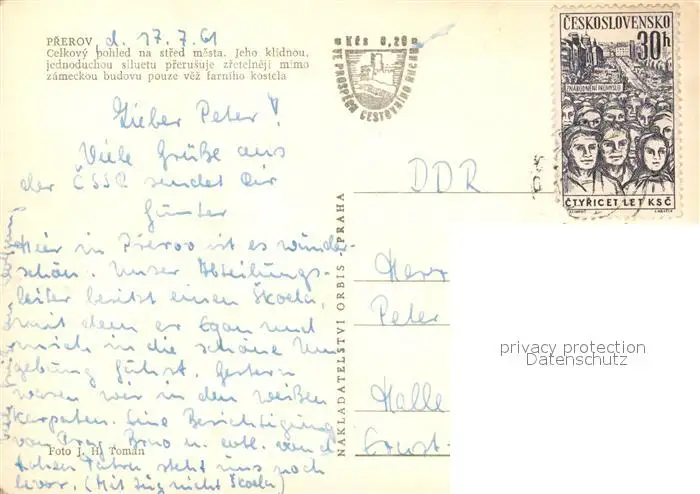 PŘEROV, d. 17.7.61
Celkový pohled na střed města. Jeho klidnou,
jednoduchou siluetu přerušuje zřetelněji mimo
zámeckou budovu pouze věž farního kostela
Lieber Peter!
Viele Grüße aus
der ČSSR sendet Dir
Günter
Hier in Přerov ist es wunder-
schön. Unser Abteilungs-
leiter besitzt einen Škoda,
mit dem er Egon und
mich in die schöne Um
gebung fährt. Gestern
waren wir in den weißen
Karpaten. Eine Besichtigung
von Prag, Brno u. evtl. von d
Hohen Tatra steht uns noch
bevor. (Mit Zug nicht Škoda)
Foto J. H. Toman
NAKLADATELSTVÍ ORBIS - PRAHA
Kčs 0,20
VE PROSPĚCH CESTOVNÍHO RUCHU
ČESKOSLOVENSKO
30h
ZNÁRODNĚNÍ PRŮMYSLU
ČTYŘICET LET KSČ
DDR
Herr
Peter
Halle
Ernst-
privacy protection
Datenschutz